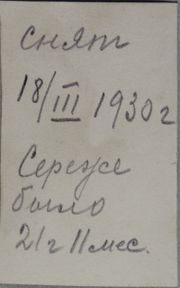 снят
18/III 1930 г
Сереже
было
21 г 11 мес.